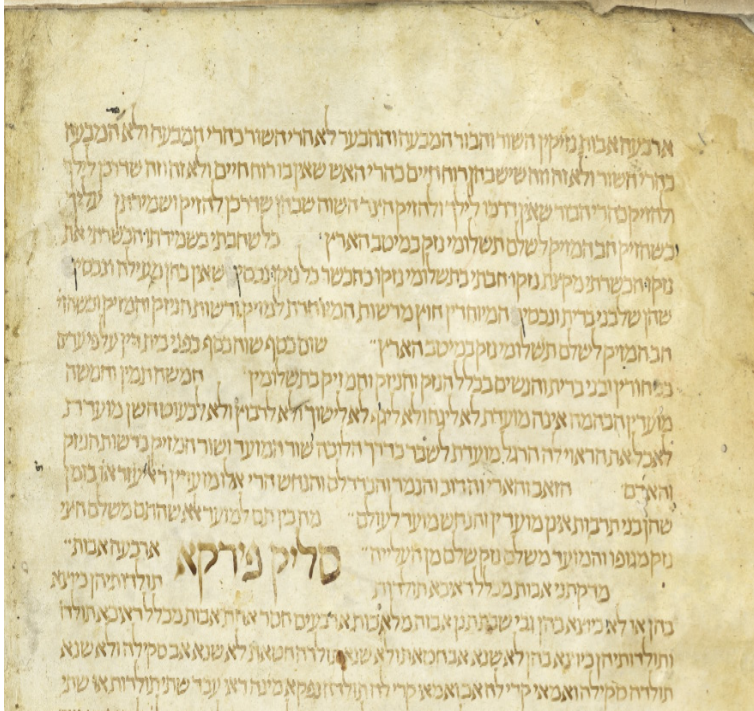 ארבעה אבות נזיקין השור והבור המבעה וההבער לא הרי השור כהרי המבעה ולא המבעה
כהרי השור ולא זה וזה שיש בהן רוח חיים כהרי האש שאין בו רוח חיים ולא זה וזה שדרכן לילך
ולהזיק כהרי הבור שאין דרכו לילך ולהזיק הצד השוה שבהן שדרכן להזיק ושמירתן עליך
כשהזיק חב המזיק לשלם תשלומי נזק במיטב הארץ כל שחבתי בשמירתו הכשרתי את
נזקו הכשרתי מקצת נזקו חבתי בתשלומי נזקו כהכשר כל נזקו נכסין שאין בהן מעילה ונכסין
שהן שלבני ברית ונכסין המיוחדין חוץ מרשות המיוחדת למזיק ורשות הניזק והמזיק וכשהזיק
חב המזיק לשלם תשלומי נזק במיטב הארץ שום כסף שוה כסף בפני בית דין על פי עדים
בני חורין ובני ברית והנשים בכלל הנזק והניזק והמזיק בתשלומין חמשה תמין וחמשה
מועדין הבהמה אינה מועדת לא ליגח ולא ליגוף ולא לישוך ולא לרבוץ ולא לבעוט השן מועדת
לאכל את הראוי לה הרגל מועדת לשבר בדרך הלוכה שור המועד ושור המזיק ברשות הניזק
והאדם הזאב והארי והדוב והנמר והברדלס והנחש הרי אלו מועדין ר' אליעזר אומ' בזמן
שהן בני תרבות אינן מועדין והנחש מועד לעולם מה בין תם למועד אלא שהתם משלם חצי
נזק מגופו והמועד משלם נזק שלם מן העלייה סליק פירקא ארבעה אבות
מדקתני אבות מכלל דאיכא תולדות תולדותיהן כיוצא
בהן או לאו כיוצא בהן וגבי שבת תנן אבות מלאכות ארבעים חסר אחת אבות מכלל דאיכא תולדו'
ותולדותיהן כיוצא בהן לא שנא אב חטאת ולא שנא תולדה חטאת לא שנא אב סקילה ולא שנא
תולדה סקילה ואמאי קרי לה אב ואמאי קרי לה תולדה נפקא מינה דאי עבד שתי תולדות או שתי